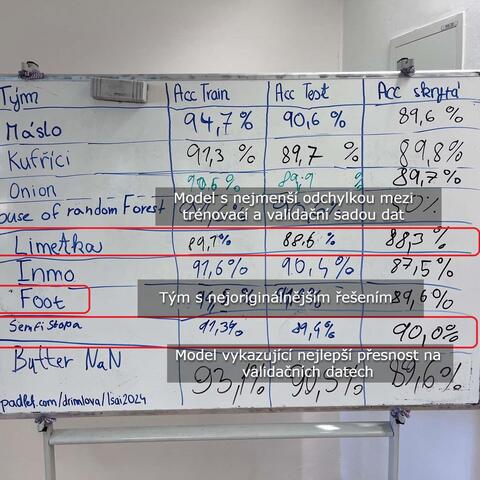 Tým Acc Train Acc Test Acc skrytá
Máslo 94,7% 90,6% 89,6%
Kufříci 91,3% 89,7% 89,8%
Onion 90,6% 89,9 % 89,7%
ouse of random Forest
Model s nejmenší odchylkou mezi
trénovací a validační sadou dat
Limetka 89,7% 88,6% 88,3%
Inmo 91,6% 90,4% 87,5%
Foot 89,6%
Tým s nejoriginálnějším řešením
Senfistopa 91,3% 89,4% 90,0%
Butter NaN 93,1% 90,5% 89,6%
Model vykazující nejlepší přesnost na
validačních datech
padlet.com/drimlova/lsai2024